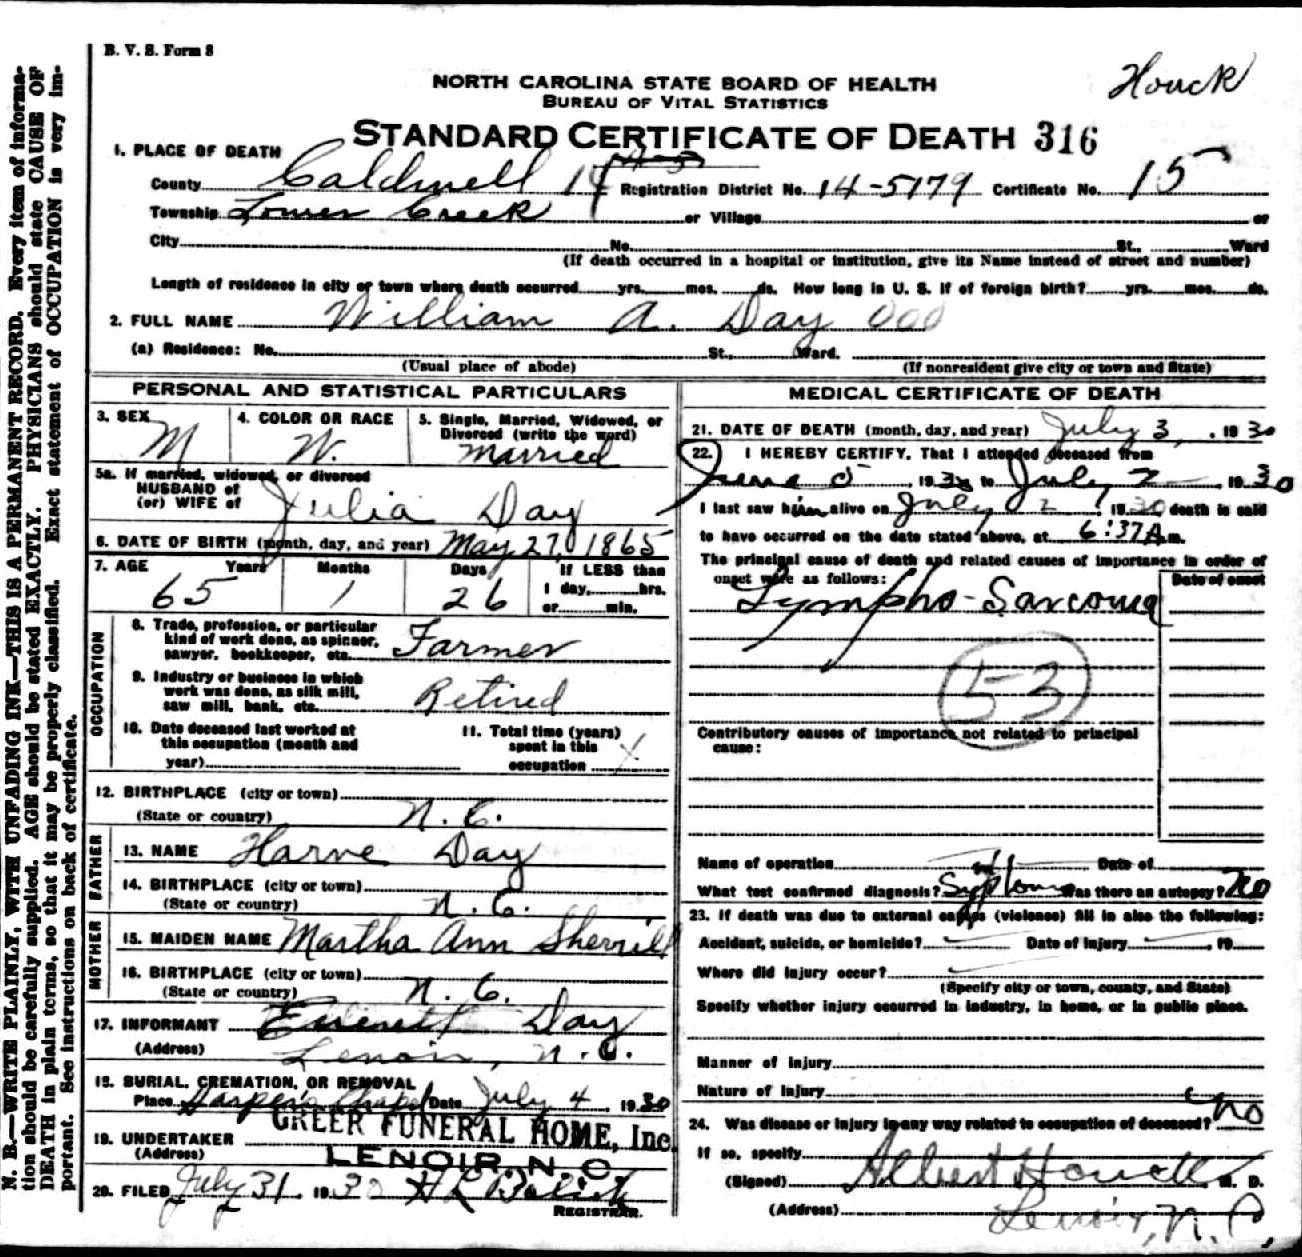 B. V. S. Form 8
Houck
NORTH CAROLINA STATE BOARD OF HEALTH
BUREAU OF VITAL STATISTICS
STANDARD CERTIFICATE OF DEATH 316
1. PLACE OF DEATH
County Caldwell 14 Registration District No. 14-5179 Certificate No. 15
Township Lower Creek or Village or
City No. St., Ward
(If death occurred in a hospital or institution, give its Name instead of street and number)
Length of residence in city or town where death occurred yrs. mos. ds. How long in U. S. if of foreign birth? yrs. mos. ds.
2. FULL NAME William A. Day
(a) Residence: No. St., Ward.
(Usual place of abode) (If nonresident give city or town and State)
PERSONAL AND STATISTICAL PARTICULARS
3. SEX M
4. COLOR OR RACE W.
5. Single, Married, Widowed, or Divorced (write the word) Married
5a. If married, widowed, or divorced
HUSBAND of
(or) WIFE of Julia Day
6. DATE OF BIRTH (month, day, and year) May 27, 1865
7. AGE Years Months Days If LESS than
65 1 26 1 day, hrs.
or min.
OCCUPATION
8. Trade, profession, or particular
kind of work done, as spinner,
sawyer, bookkeeper, etc. Farmer
9. Industry or business in which
work was done, as silk mill,
saw mill, bank, etc. Retired
10. Date deceased last worked at
this occupation (month and
year)
11. Total time (years)
spent in this
occupation
12. BIRTHPLACE (city or town)
(State or country) N. C.
FATHER
13. NAME Harve Day
14. BIRTHPLACE (city or town)
(State or country) N. C.
MOTHER
15. MAIDEN NAME Martha Ann Sherrill
16. BIRTHPLACE (city or town)
(State or country) N. C.
17. INFORMANT Everett Day
(Address) Lenoir, N. C.
18. BURIAL, CREMATION, OR REMOVAL
Place Harper's Chapel Date July 4, 1930
19. UNDERTAKER GREER FUNERAL HOME, Inc
(Address) LENOIR, N. C.
20. FILED July 31 1930
REGISTRAR.
MEDICAL CERTIFICATE OF DEATH
21. DATE OF DEATH (month, day, and year) July 3, 1930
22. I HEREBY CERTIFY, That I attended deceased from
June 5 1930 to July 2 1930
I last saw him alive on July 2, 1930 death is said
to have occurred on the date stated above, at 6:37 A. m.
The principal cause of death and related causes of importance in order of
onset were as follows: Date of onset
Lympho-Sarcoma
53
Contributory causes of importance not related to principal
cause:
Name of operation Date of
What test confirmed diagnosis? Was there an autopsy? No
23. If death was due to external causes (violence) fill in also the following:
Accident, suicide, or homicide? Date of injury, 19
Where did injury occur?
(Specify city or town, county, and State)
Specify whether injury occurred in industry, in home, or in public place.
Manner of injury
Nature of injury
24. Was disease or injury in any way related to occupation of deceased? no
If so, specify
(Signed) Albert Houck M. D.
(Address) Lenoir, N. C.
N. B.—WRITE PLAINLY, WITH UNFADING INK—THIS IS A PERMANENT RECORD. Every item of informa-
tion should be carefully supplied. AGE should be stated EXACTLY. PHYSICIANS should state CAUSE OF
DEATH in plain terms, so that it may be properly classified. Exact statement of OCCUPATION is very im-
portant. See instructions on back of certificate.